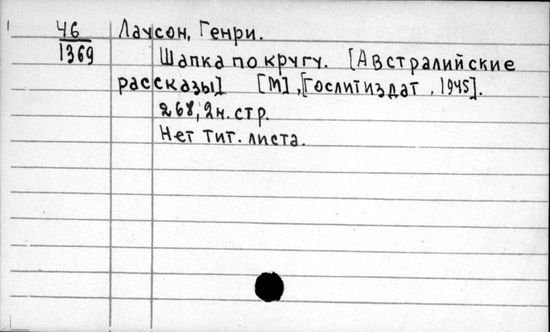 46 Лаусон, Генри.
1369 Шапка по кругу. [Австралийские
рассказы] [М], [Гослитиздат, 1945].
268, 2н. стр.
Нет тит. листа.